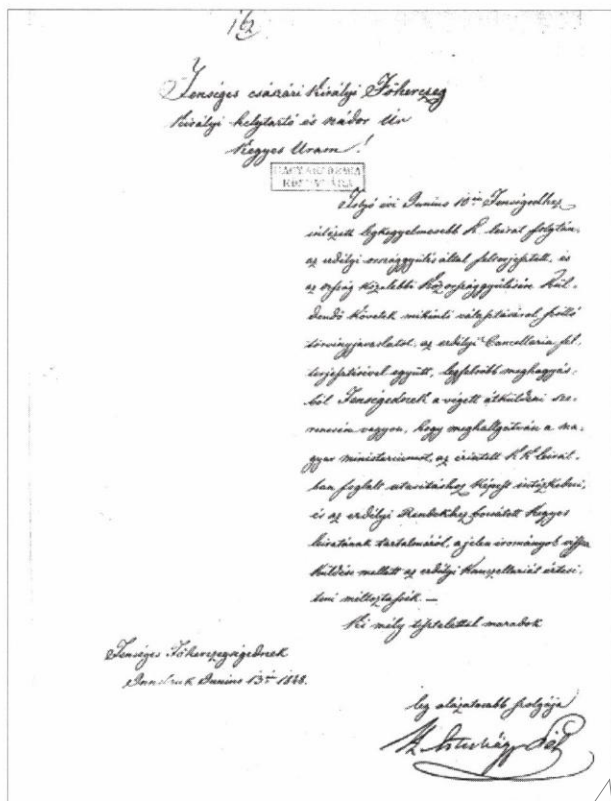 16/2
Fenséges császári Királyi Főherczeg
Királyi helytartó és nádor Úr
Kegyes Uram!
MAGY. AKADÉMIA
KÖNYVTÁRA
Folyó évi Junius 10én Fenségedhez
intézett legkegyelmesebb K. leirat folytán,
az erdélyi országgyülés által felterjesztett, és
az ország közelebbi Közországgyülésén Kül-
dendő követek mikénti választásáról szólló
törvényjavaslatot, az erdélyi Cancellaria fel-
terjesztésével együtt, legfelsőbb meghagyás-
ból Fenségednek a végett átküldeni sze-
rencsém vagyon, hogy meghallgatván a ma-
gyar ministeriumot, az érintett K. K. leirat-
ban foglalt utasitáshoz képest intézkedni,
és az erdélyi Rendekhez bocsátott Kegyes
leiratának tartalmáról, a jelen irományok vissza
küldése mellett az erdélyi Kanczellariát értesi-
teni méltoztassék. —
Ki mély tisztelettel maradok
Fenséges Főherczegségednek
Innsbruk Junius 13án 1848.
leg alázatosabb szolgája
H. Eszterházy Pál